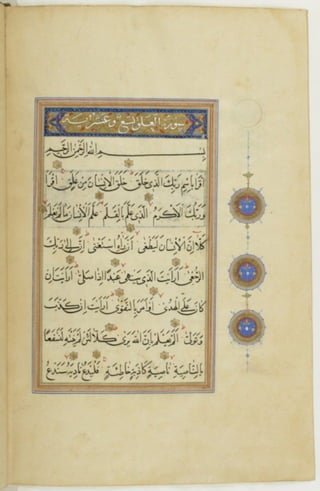 سورة العلق تسع وعشر آية
بسم الله الرحمن الرحيم
اقرأ باسم ربك الذي خلق خلق الانسان من علق اقرأ
وربك الاكرم الذي علم بالقلم علم الانسان ما لم يعلم
كلا ان الانسان ليطغى ان راه استغنى ان الى ربك
الرجعى ارايت الذي ينهى عبدا اذا صلى ارايت ان
كان على الهدى او امر بالتقوى ارايت ان كذب
وتولى الم يعلم بان الله يرى كلا لئن لم ينته لنسفعا
بالناصية ناصية كاذبة خاطئة فليدع ناديه سندع